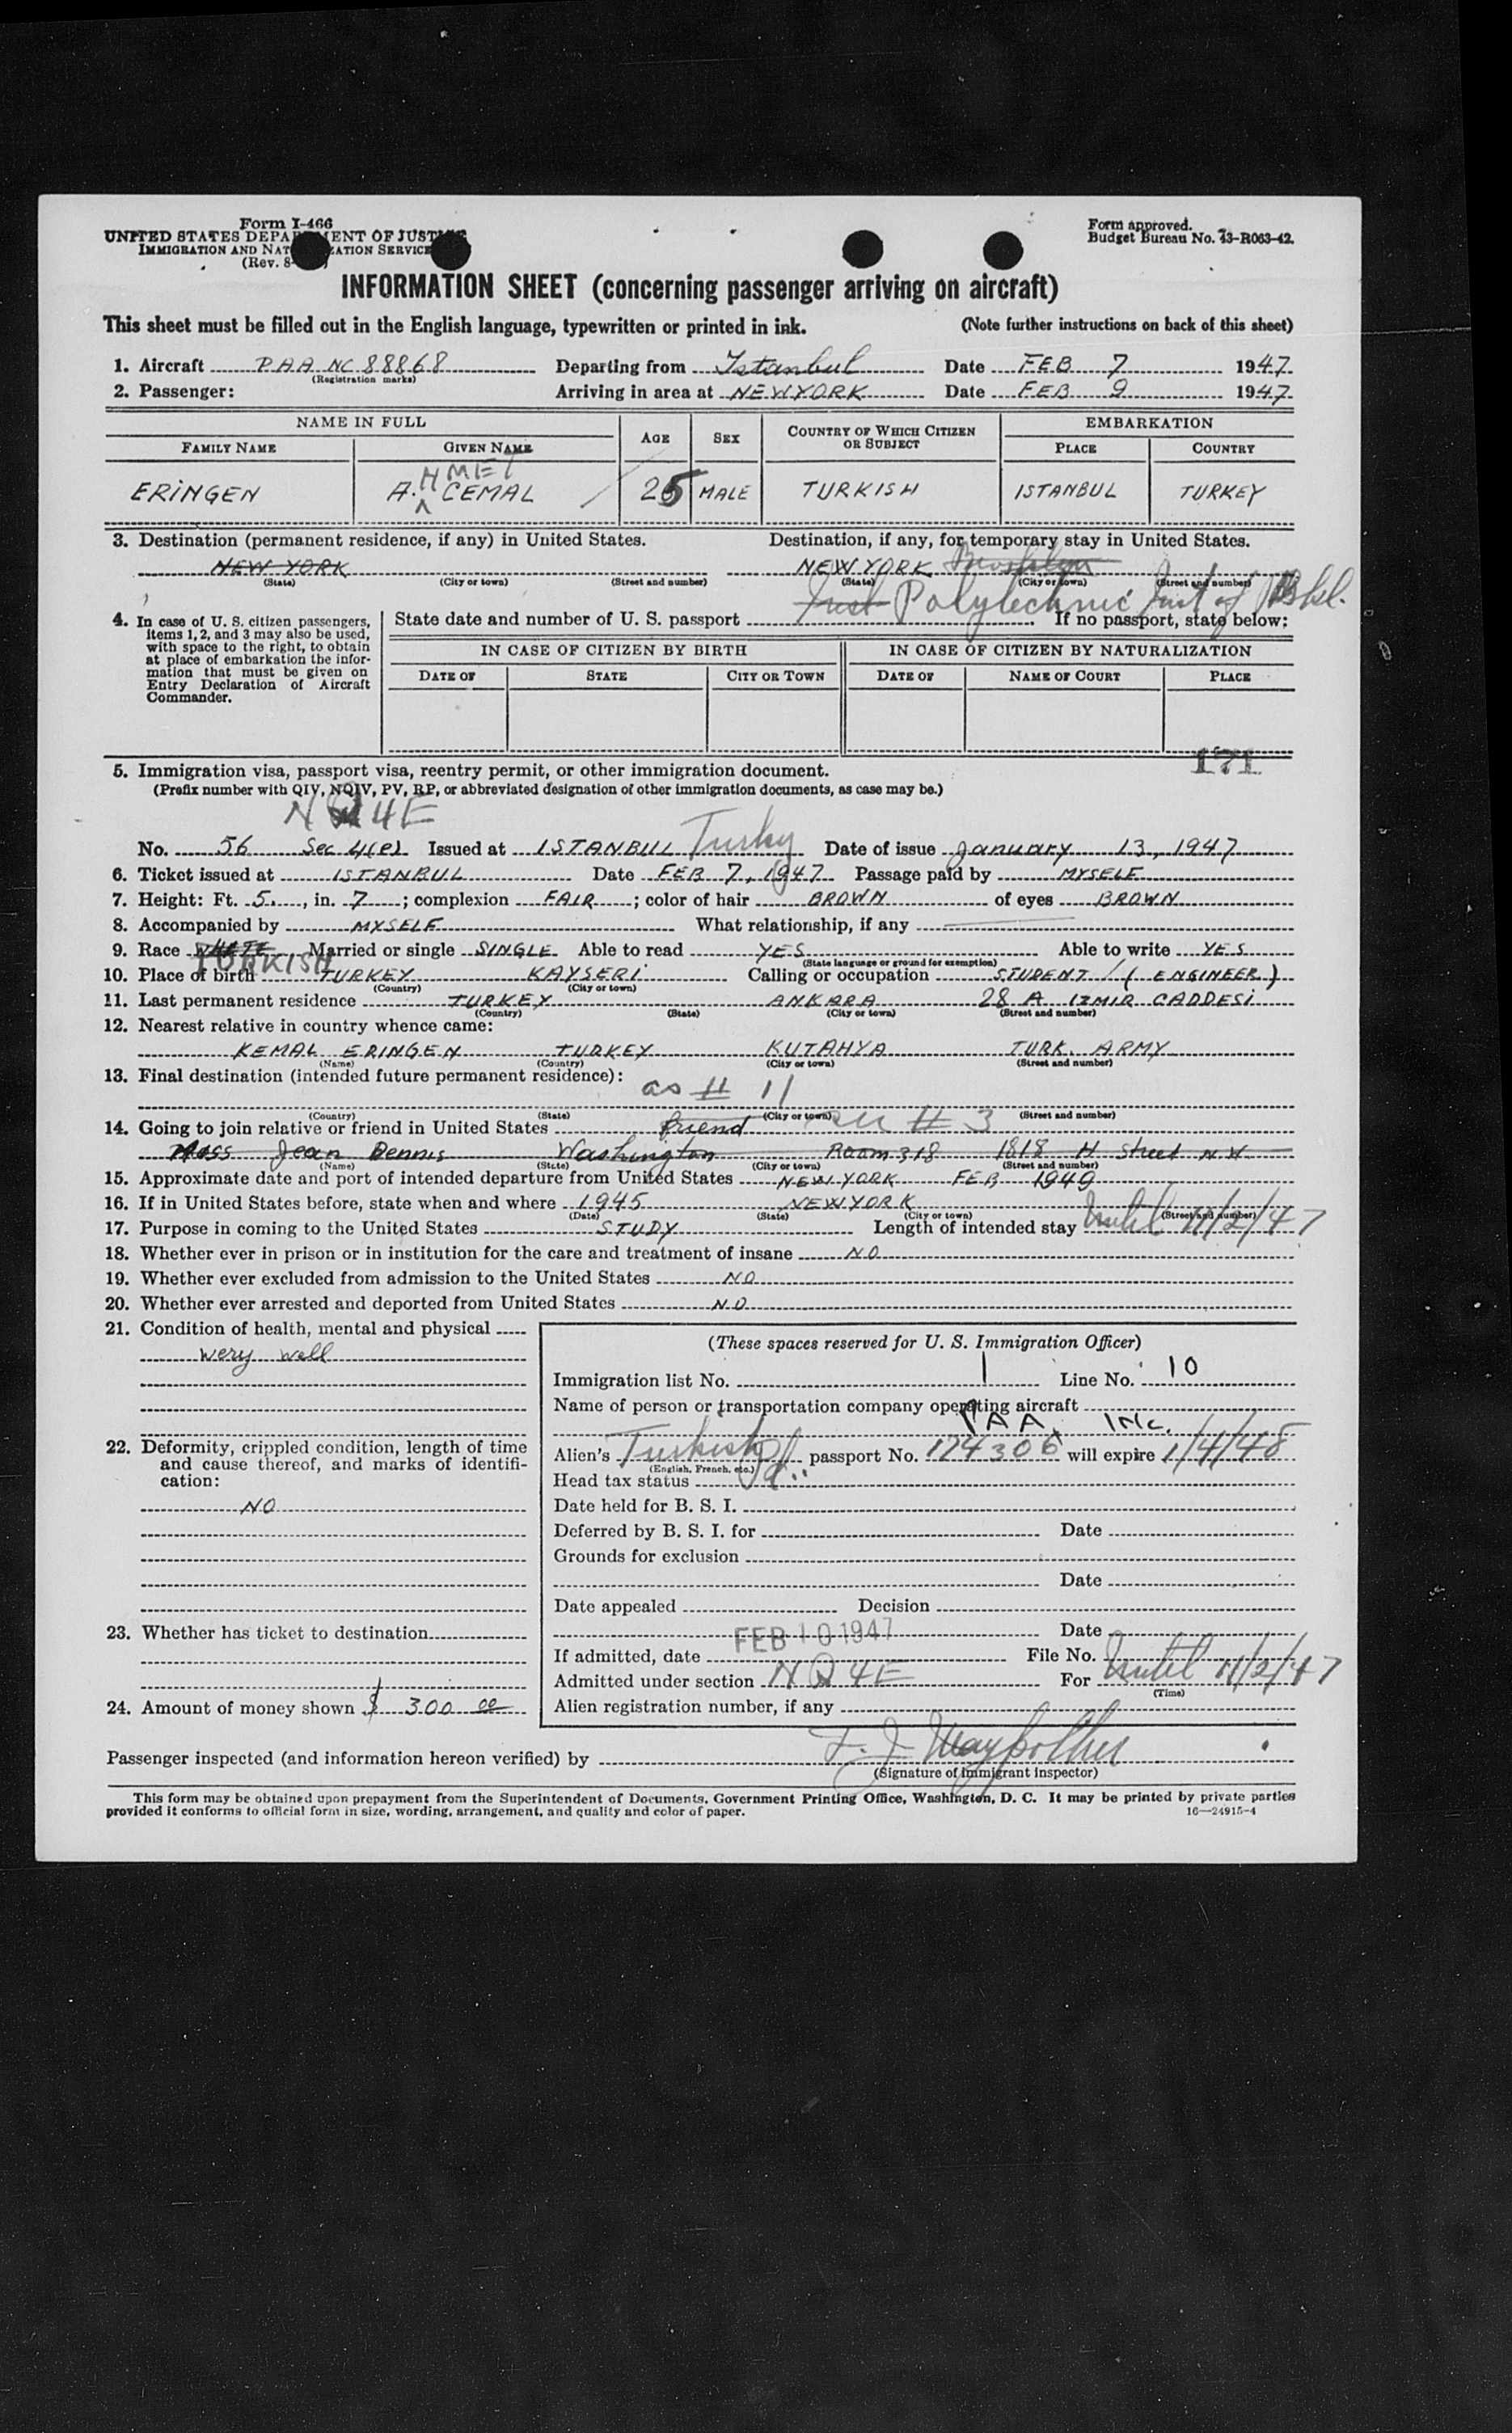 Form I-466
UNITED STATES DEPARTMENT OF JUSTICE
IMMIGRATION AND NATURALIZATION SERVICE
(Rev. 8-
Form approved.
Budget Bureau No. 43-R063-42.
INFORMATION SHEET (concerning passenger arriving on aircraft)
This sheet must be filled out in the English language, typewritten or printed in ink. (Note further instructions on back of this sheet)
1. Aircraft PAA NC 88868 Departing from Istanbul Date FEB 7 1947
(Registration marks)
2. Passenger: Arriving in area at NEW YORK Date FEB 9 1947
NAME IN FULL AGE SEX COUNTRY OF WHICH CITIZEN OR SUBJECT EMBARKATION
FAMILY NAME GIVEN NAME PLACE COUNTRY
HMET
ERiNGEN A. CEMAL 25 MALE TURKISH ISTANBUL TURKEY
3. Destination (permanent residence, if any) in United States. Destination, if any, for temporary stay in United States.
NEW YORK NEW YORK Brooklyn
(State) (City or town) (Street and number) (State) (City or town) (Street and number)
Inst Polytechnic Inst of Bkl.
4. In case of U. S. citizen passengers, items 1, 2, and 3 may also be used, with space to the right, to obtain at place of embarkation the information that must be given on Entry Declaration of Aircraft Commander.
State date and number of U. S. passport If no passport, state below:
IN CASE OF CITIZEN BY BIRTH IN CASE OF CITIZEN BY NATURALIZATION
DATE OF STATE CITY OR TOWN DATE OF NAME OF COURT PLACE
171
5. Immigration visa, passport visa, reentry permit, or other immigration document.
(Prefix number with QIV, NQIV, PV, RP, or abbreviated designation of other immigration documents, as case may be.)
NQ 4E
No. 56 Sec 4(e) Issued at ISTANBUL Turkey Date of issue January 13, 1947
6. Ticket issued at ISTANBUL Date FEB 7, 1947 Passage paid by MYSELF
7. Height: Ft. 5., in. 7; complexion FAIR; color of hair BROWN of eyes BROWN
8. Accompanied by MYSELF What relationship, if any
9. Race WHITE Married or single SINGLE Able to read YES Able to write YES
TURKISH (State language or ground for exemption)
10. Place of birth TURKEY KAYSERi Calling or occupation STUDENT / (ENGINEER)
(Country) (City or town)
11. Last permanent residence TURKEY ANKARA 28 A IZMIR CADDESi
(Country) (State) (City or town) (Street and number)
12. Nearest relative in country whence came:
KEMAL ERINGEN TURKEY KUTAHYA TURK. ARMY
(Name) (Country) (City or town) (Street and number)
13. Final destination (intended future permanent residence): as # 11
(Country) (State) (City or town) (Street and number)
14. Going to join relative or friend in United States friend # 3
Miss Jean Dennis Washington Room 318 1818 H Street N W
(Name) (State) (City or town) (Street and number)
15. Approximate date and port of intended departure from United States NEW YORK FEB 1949
16. If in United States before, state when and where 1945 NEW YORK
(Date) (State) (City or town) (Street and number)
17. Purpose in coming to the United States STUDY Length of intended stay Until 11/2/47
18. Whether ever in prison or in institution for the care and treatment of insane NO
19. Whether ever excluded from admission to the United States NO
20. Whether ever arrested and deported from United States NO
21. Condition of health, mental and physical
wery well
22. Deformity, crippled condition, length of time and cause thereof, and marks of identification:
NO
23. Whether has ticket to destination
24. Amount of money shown $ 300 00
(These spaces reserved for U. S. Immigration Officer)
Immigration list No. 1 Line No. 10
Name of person or transportation company operating aircraft
PAA INc.
Alien's Turkish passport No. 174306 will expire 1/4/48
(English, French, etc.)
Head tax status
Date held for B. S. I.
Deferred by B. S. I. for Date
Grounds for exclusion
Date
Date appealed Decision
Date
If admitted, date FEB 10 1947 File No.
Admitted under section NQ 4E For Until 11/2/47
(Time)
Alien registration number, if any
Passenger inspected (and information hereon verified) by
(Signature of immigrant inspector)
This form may be obtained upon prepayment from the Superintendent of Documents, Government Printing Office, Washington, D. C. It may be printed by private parties
provided it conforms to official form in size, wording, arrangement, and quality and color of paper. 16—24915-4